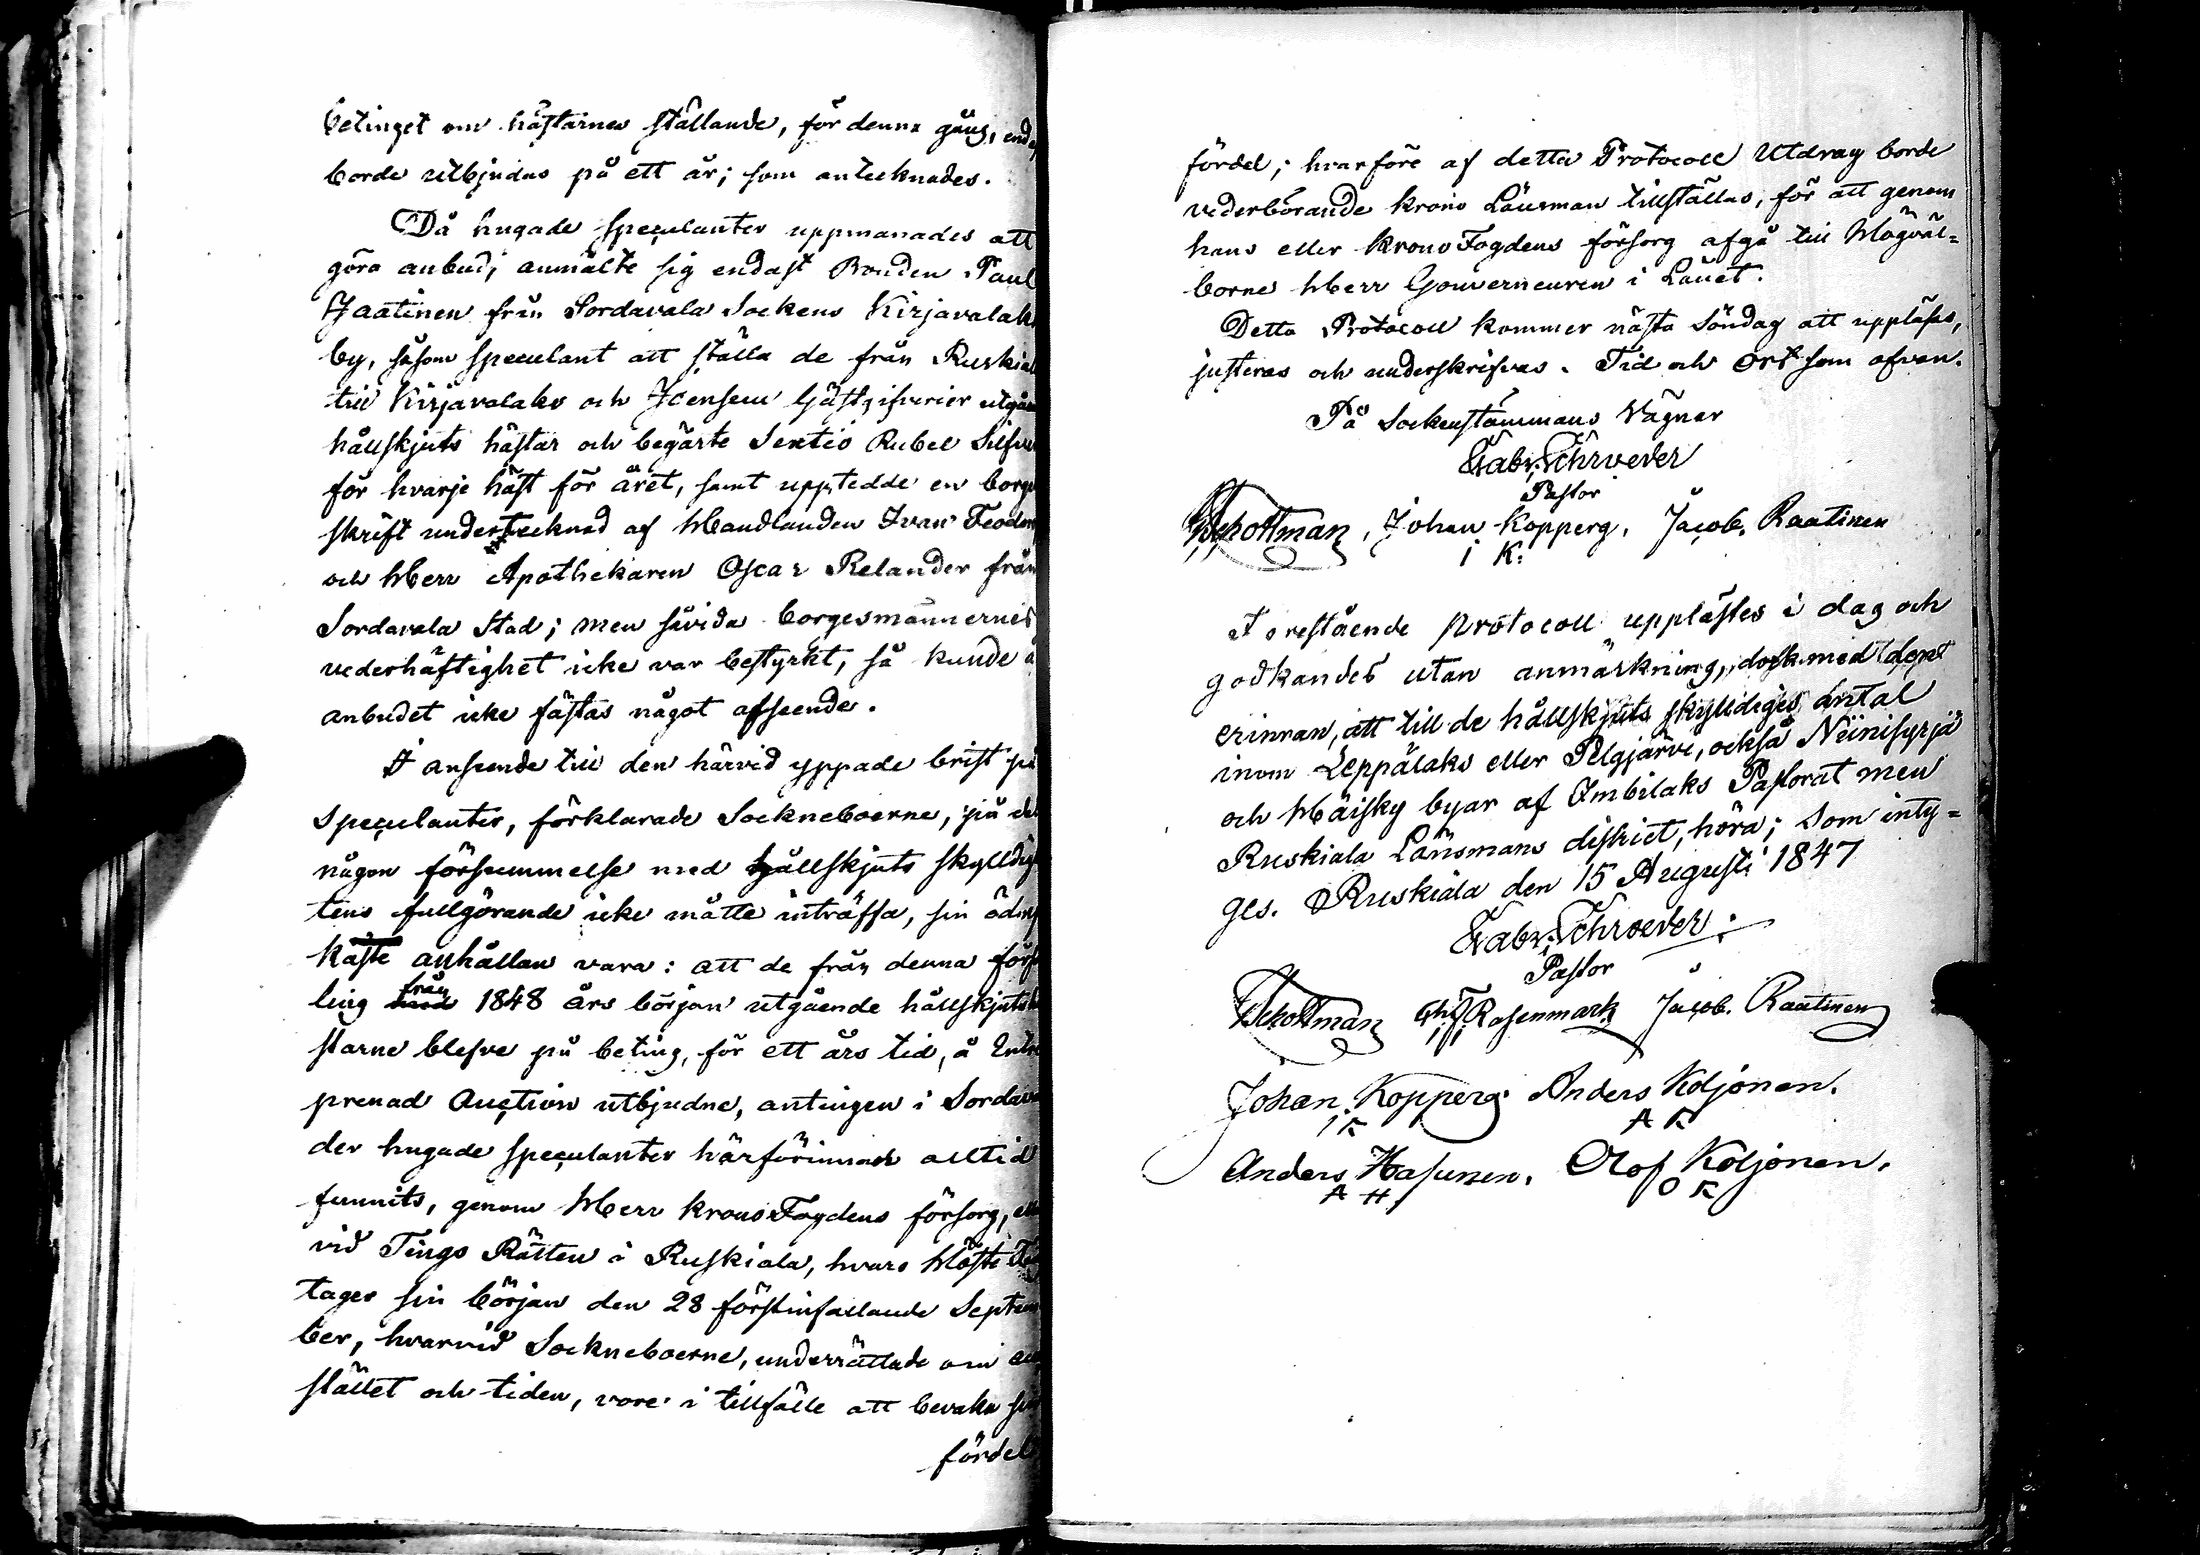 betinget om hästarnes ställande, för denna gång, end
borde utbjudas på ett år; som antecknades.
Då hugade speculanter uppmanades att
göra anbud; anmälte sig endast Bonden Paul
Jaatinen från Sordavala Sockens Kirjavalaks
by, såsom speculant att ställa de från Ruskiala
till Kirjavalaks och Joensuu Gästgifverier utgåen
hållskjuts hästar och begärte Sextio Rubel Silfver
för hvarje häst för året, samt uppstedde en borgs
skrift undertecknad af Handlanden Ivan Feodor
och Herr Apothekaren Oscar Relander från
Sordavala Stad; men såvida borgesmännernes
vederhäftighet icke var bestyrkt, så kunde å
anbudet icke fästas något afseende.
I anseende till den härvid yppade brist på
speculanter, förklarade Sockneboerne, på det
någon försummelse med hållskjuts skylldig
tens fullgörande icke måtte inträffa, sin ödmj
kaste anhållan vara: att de från denna förs
ling från 1848 års början utgående hållskjuts
starne blefve på beting, för ett års tid, å Entre
prenad Auction utbjudne, antingen i Sordava
der hugade speculanter härförinnan alltid
funnits, genom Herr KronoFogdens försorg, ell
vid Tings Rätten i Ruskiala, hvars Höste T
tager sin början den 28 förstinfallande Septem
ber, hvarvid Sockneboerne, underrättade om
stället och tiden, vore i tillfälle att bevaka sin
fördel
fördel; hvarföre af detta Protocoll Utdrag borde
vederbörande krono Länsman tillställas, för att genom
hans eller KronoFogdens försorg afgå till Högväl=
borne Herr Gouverneuren i Länet.
Detta Protocoll kommer nästa Söndag att uppläsas,
justeras och underskrifvas. Tid och Ort som ofvan.
På Sockenstämmans Vägnar
Gabr. Schroeder
Pastor
Schottman, Johan Kopperg, Jacob. Raatinen
I K:
Forestående protocoll upplästes i dag och
godkändes utan anmärkning, dock med den
erinran, att till de hållskjuts skylldiges antal
inom Leppälaks eller Pelgjärvi, också Neinisyrjä
och Häisky byar af Imbilaks Pastorat men
Ruskiala Länsmans district, höra; som inty=
ges. Ruskiala den 15 Augusti 1847
Gabr. Schroeder
Pastor
Schottman Rosenmark Jacob. Raatinen
Johan Kopperg Anders Koljonen.
I K A K
Anders Hasunen. Olof Koljonen.
A H O K